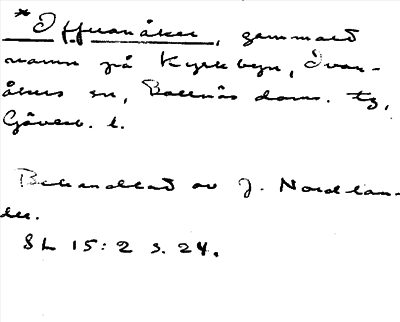 *Offuanåker, gammalt
namn på Kyrkbyn, Ovan-
åkers sn, Bollnäs doms. tg,
Gävleb. l.
Behandlad av J. Nordlan-
der.
SL 15:2 s. 24.